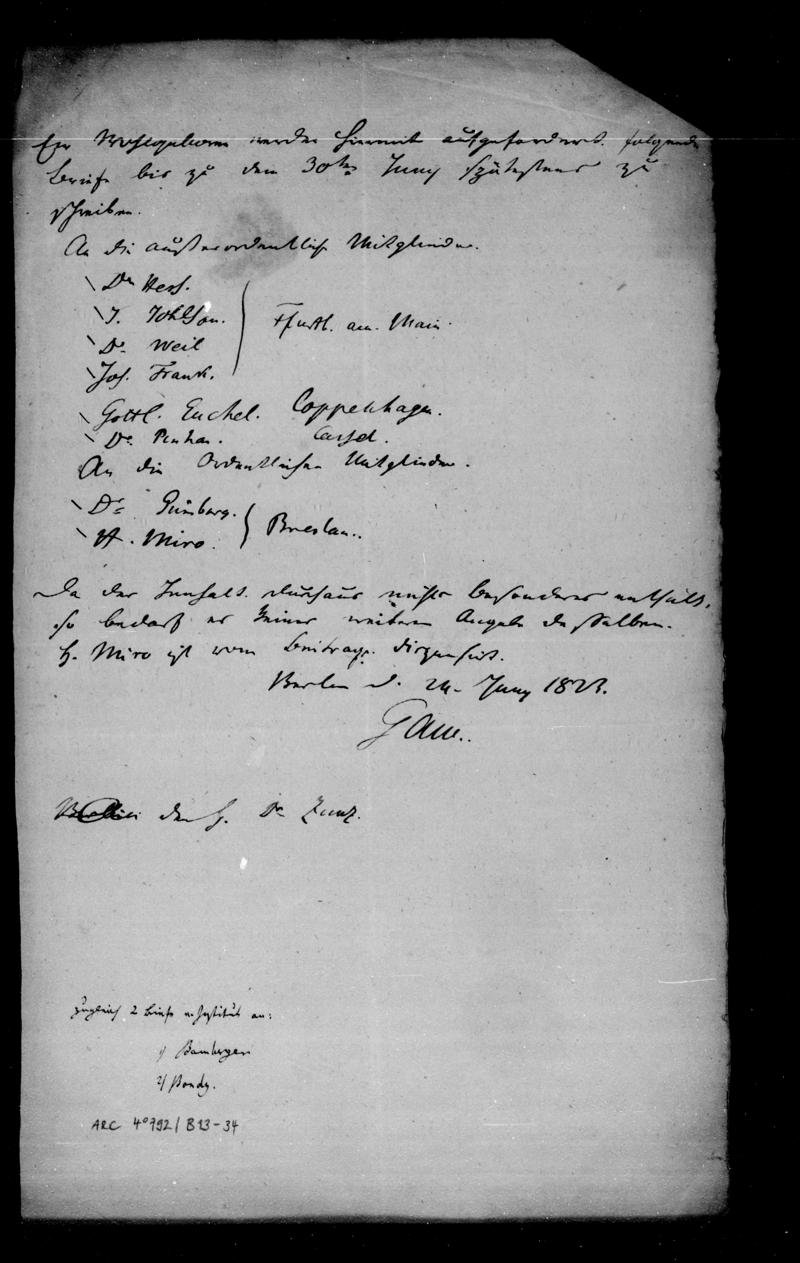 Ew Wohlgeboren werden hiermit aufgefordert. folgende
Briefe bis zu dem 30ten Juny spätestens zu
schreiben.
An die außerordentlichen Mitglieder.
Dr Hess.
J. Johlson.
Dr. Weil
Jos. Frank.
Ffurth. am. Main.
Gottl. Euchel. Coppenhagen.
Dr. Pinhas. Cassel.
An die Ordentlichen Mitglieder.
Dr. Günsburg.
H. Miro.
Breslau..
Da der Innhalt. durchaus nichts besonderes enthält,
so bedarf es keiner weitern Angabe desselben.
H. Miro ist vom Beitrage. dispensirt.
Berlin d. 24. Juny 1823.
Gans.
den H. Dr Zunz.
zugleich 2 Briefe v. Institut an:
1/ Bamberger
2/ Bondy.
ARC 4°792/B13-34